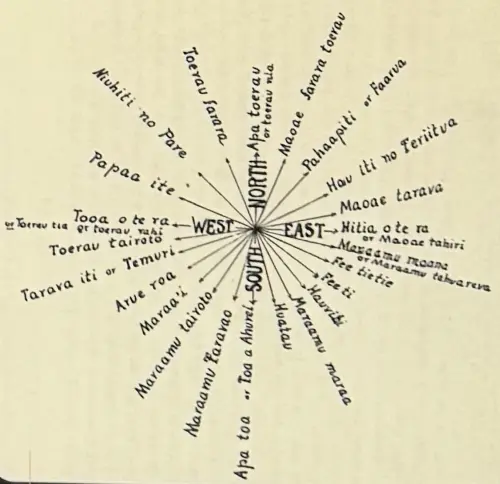 NORTH
Apa toerau
or toerau nia
Maoae farara toerau
Pahaapiti or Faarua
Hau iti no Teriitua
Maoae tarava
EAST
Hitia o te ra
or Maoae tahiri
Maraamu moana
or Maraamu tahuareva
Fee tietie
Feeti
Hauviti
Maraamu maraa
Huatau
SOUTH
Apa toa or Toa a Ahurei
Maraamu Taravao
Maraamu tairoto
Maraai
Arue roa
Tarava iti or Temuri
Toerau tairoto
WEST
Tooa o te ra
or Toerau tia or toerau rahi
Papaa ite
Niuhiti no Pare
Toerau farara